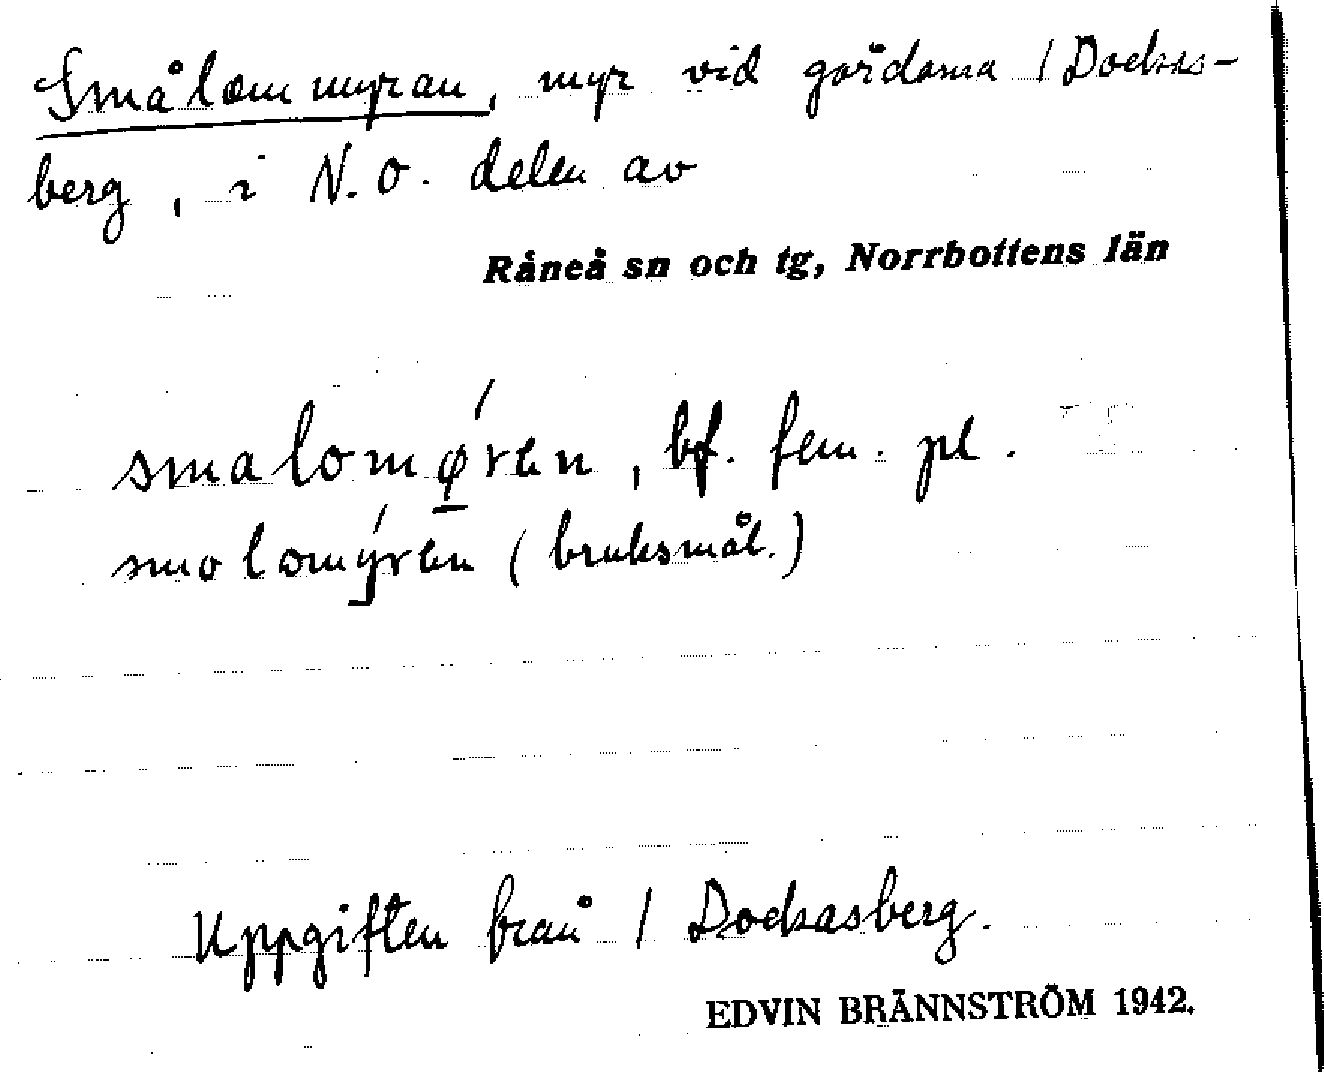 Smålommyran, myr vid gårdarna / Dockas-
berg, i N.O. delen av
Råneå sn och tg, Norrbottens län
smalomǿ̱rɛn, bf. fem. pl.
smolomýrɛn (bruksmål.)
Uppgiften från / Dockasberg.
EDVIN BRÄNNSTRÖM 1942.